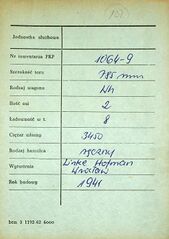 Jednostka służbowa
Nr inwentarza PKP 1064-9
Szerokość toru 785 mm
Rodzaj wagonu Wh
Ilość osi 2
Ładowność w t. 8
Ciężar własny 3450
Rodzaj hamulca ręczny
Wytwórnia Linke Hofman
Wrocław
Rok budowy 1941